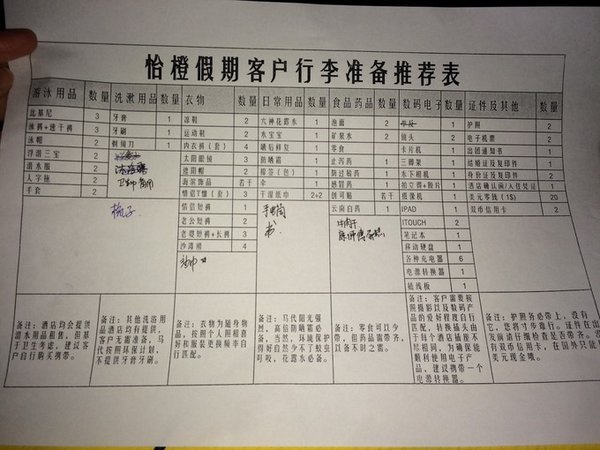 怡橙假期客户行李准备推荐表
游泳用品 数量 洗漱用品 数量 衣物 数量 日常用品 数量 食品药品 数量 数码电子 数量 证件及其他 数量
比基尼 3 牙膏 1 凉鞋 2 六神花露水 1 泡面 2 1 护照 2
泳裤+速干裤 3 牙刷 1 运动鞋 2 水宝宝 1 矿泉水 2 镜头 2 电子机票 2
泳帽 2 剃须刀 1 内衣裤（套） 4 晒后修复 1 零食 卡片机 1 出团通知书 1
浮潜三宝 2 太阳眼镜 3 防晒霜 1 止泻药 1 三脚架 1 结婚证及复印件 1
潜水服 2 遮阳帽 2 棉签（包） 1 防过敏药 1 水下相机 1 身份证及复印件 2
人字拖 2 卫生巾 备用 海滨饰品 若干 伞 1 感冒药 1 拍立得+胶片 1 酒店确认函/入住凭证 1
手套 2 情侣T恤（套） 3 干湿纸巾 2+2 创可贴 若干 摄像机 1 美元零钱（1$） 20
梳子 情侣短裤 1 手电筒 云南白药 1 IPAD 1 双币信用卡 2
老公短裤 2 书 牛肉干 ITOUCH 2
老婆短裤+长裤 3 笔记本 1
沙滩裙 4 移动硬盘 1
各种充电器 6
电源转换器 1
插线板 1
备注：酒店均会提供潜水用品租售，但基于卫生考虑，建议客户自行购买携带。
备注：其他洗浴用品酒店均有提供，客户无需准备，马代按照环保计划，不提供牙膏牙刷。
备注：衣物为随身物品，按照个人照相喜好和服装更换频率自行匹配。
备注：马代阳光强烈，高倍防晒霜必备，当然，环境保护得好自然少不了蚊虫叮咬，花露水必备。
备注：零食可以少带，但药品需带齐，以备不时之需。
备注：客户需要按照摄影以及数码产品的爱好程度自行匹配，转换插头由于每个酒店插座不尽相同，为确保能顺利使用电子产品，建议携带一个电源转换器。
备注：护照务必带上，没有它，您将寸步难行。证件在出发前请仔细检查是否带齐。只有双币信用卡，在国外只能美元现金哦。